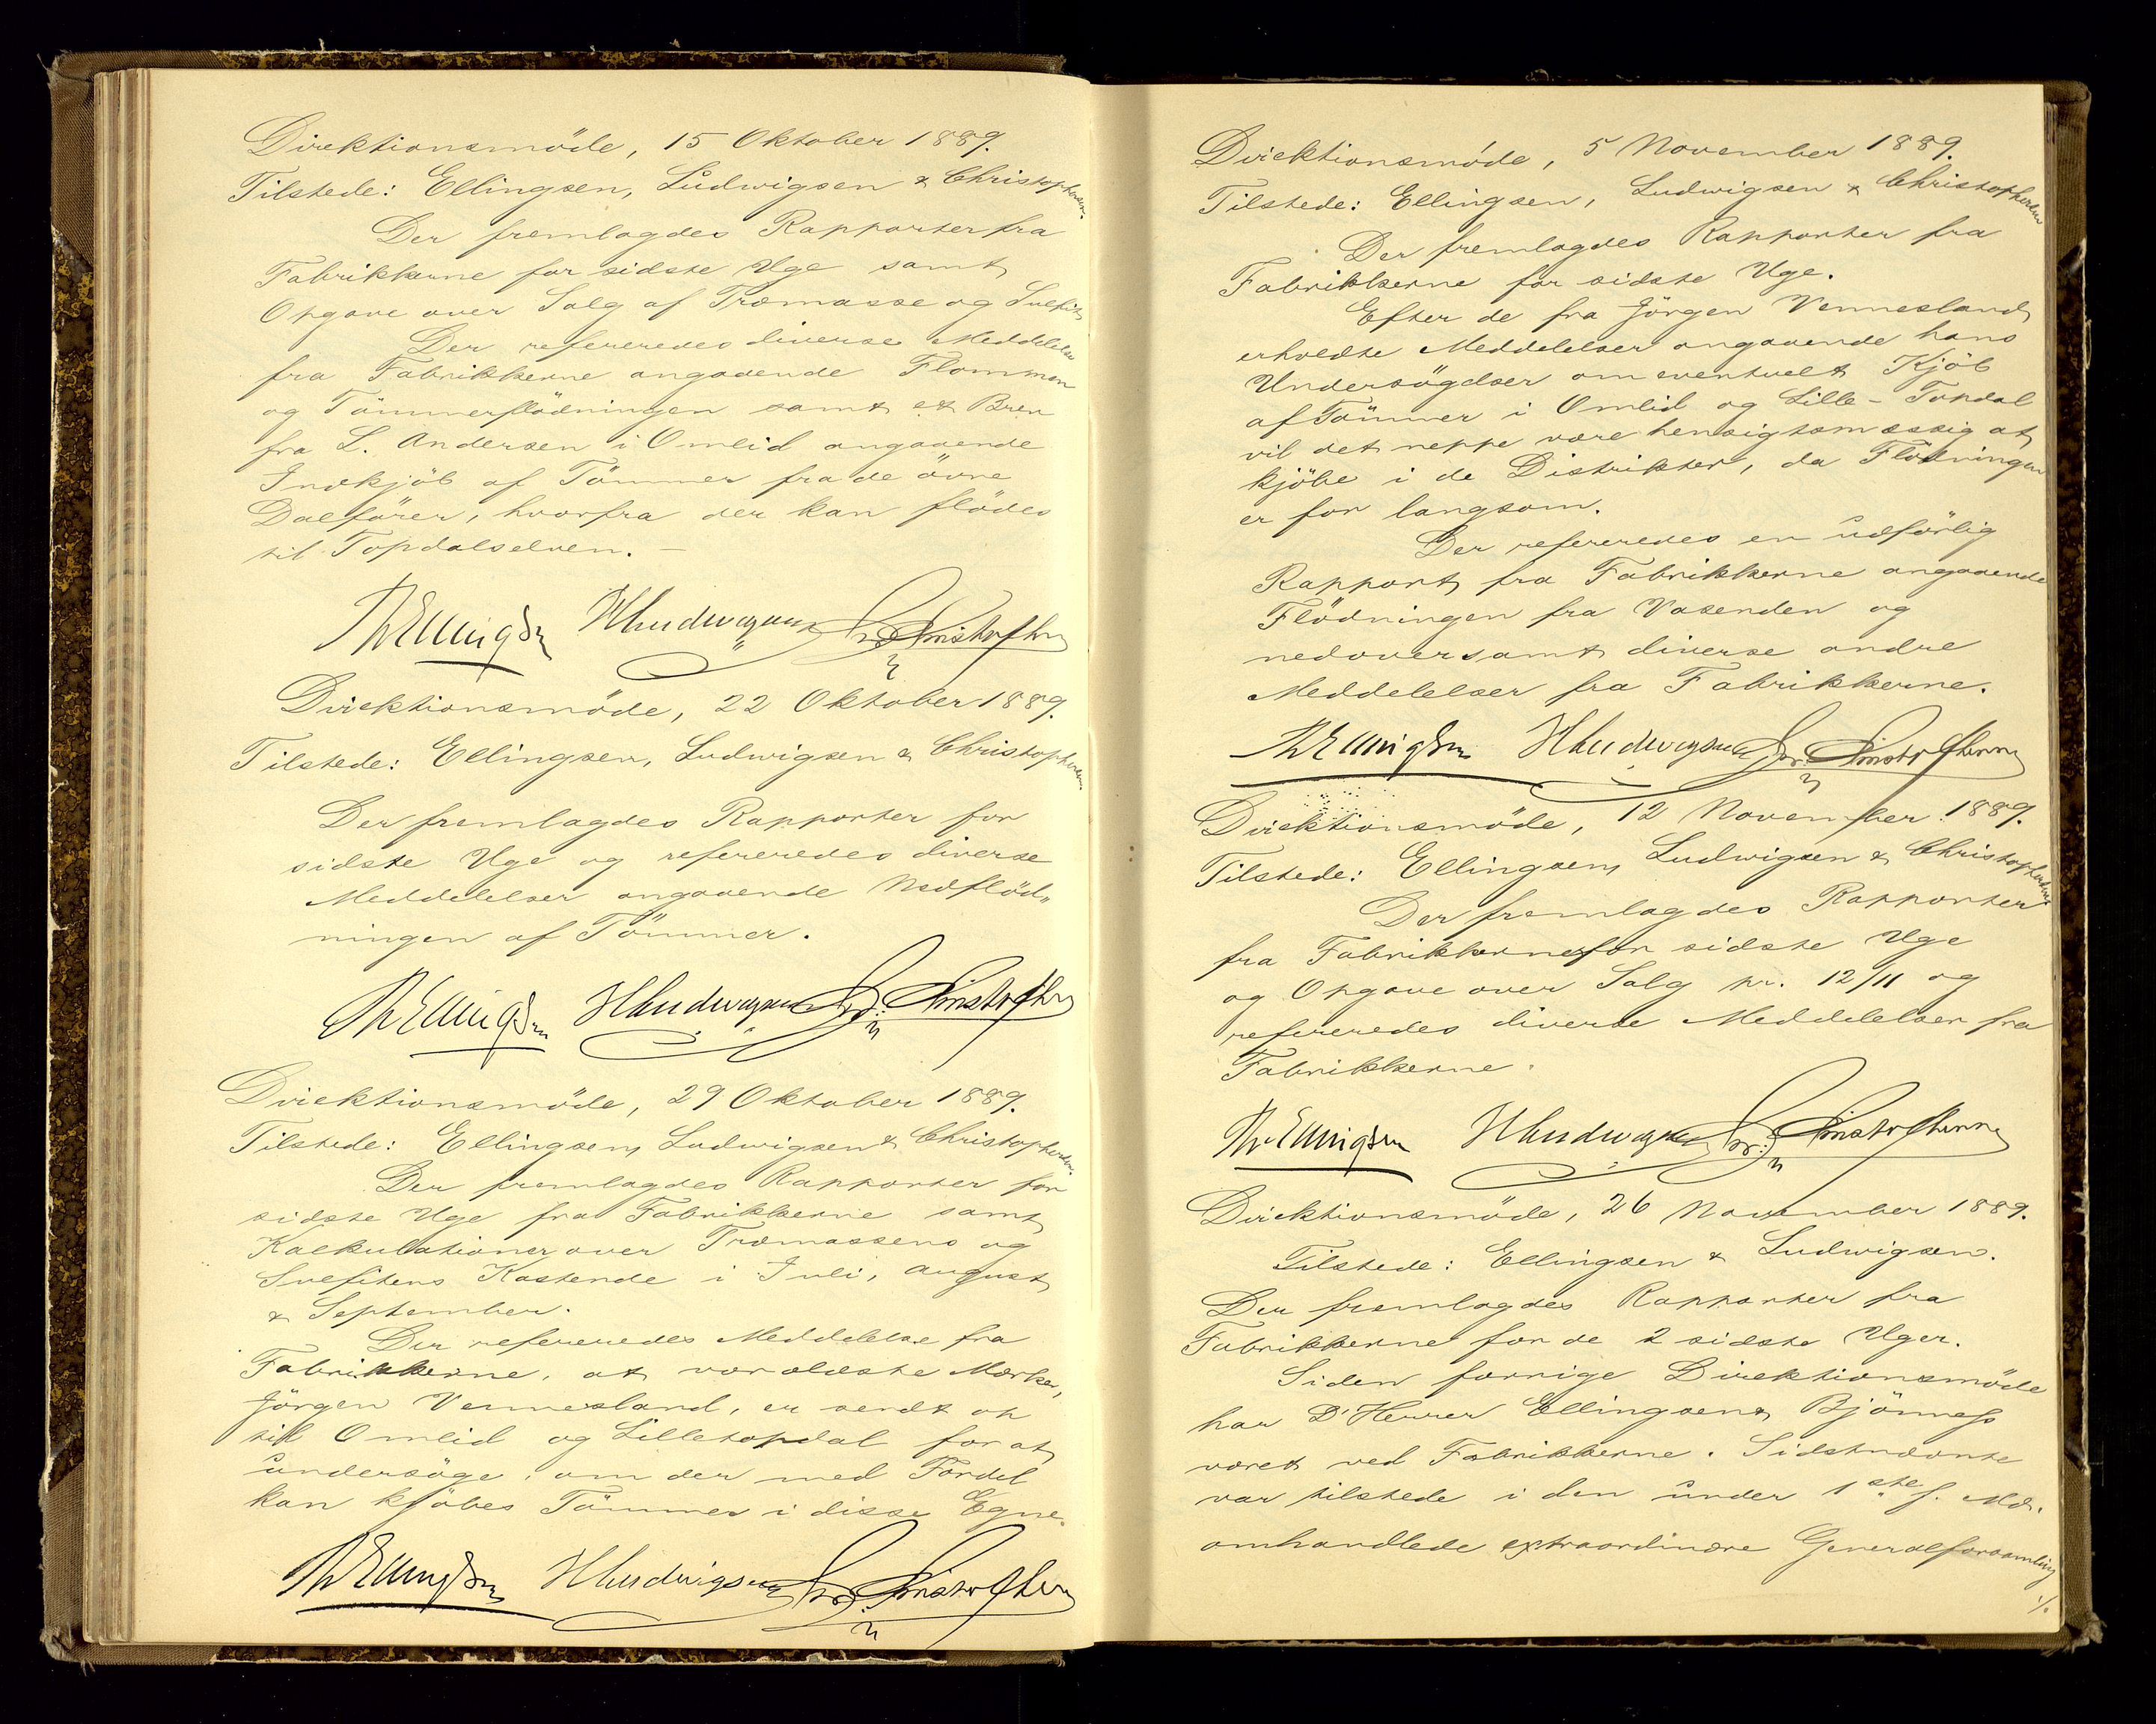 Direktionsmöde, 15 Oktober 1889.
Tilstede: Ellingsen, Ludwigsen & Christophersen.
Der fremlagdes Rapporter fra
Fabrikkerne for sidste Uge samt
Opgave over Salg af Træmasse og Sulfit
Der refereredes diverse Meddelelser
fra Fabrikkerne angaaende Flommen
og Tömmerflödningen samt et Brev
fra L. Andersen i Omlid angaaende
Indkjöb af Tömmer fra de övre
Dalförer, hvorfra der kan flödes
til Topdalselven. –
ThEllingsen HLudwigsen Chr. Christophersen
Direktionsmöde, 22 Oktober 1889.
Tilstede: Ellingsen, Ludwigsen & Christophersen
Der fremlagdes Rapporter for
sidste Uge og refereredes diverse
Meddelelser angaaende Nedflöd„
ningen af Tömmer.
ThEllingsen HLudwigsen Chr. Christophersen
Direktionsmöde, 29 Oktober 1889.
Tilstede: Ellingsen, Ludwigsen & Christophersen.
Der fremlagdes Rapporter for
sidste Uge fra Fabrikkerne samt
Kalkulationer over Træmassens og
Sulfitens Kostende i Juli, August
& September.
Der refereredes Meddelelse fra
Fabrikkerne, at vor ældste Mærker,
Jörgen Vennesland, er sendt op
til Omlid og Lilletopdal for at
undersöge, om der med Fordel
kan kjöbes Tömmer i disse Egne.
ThEllingsen HLudwigsen Chr. Christophersen
Direktionsmöde, 5 November 1889.
Tilstede: Ellingsen, Ludwigsen & Christophersen
Der fremlagdes Rapporter fra
Fabrikkerne for sidste Uge.
Efter de fra Jörgen Vennesland
erholdte Meddelelser angaaende hans
Undersögelser om eventuelt Kjöb
af Tömmer i Omlid og Lille-Topdal
vil det neppe være hensigtsmæssig at
kjöbe i de Distrikter, da Flödningen
er for langsom.
Der refereredes en udförlig
Rapport fra Fabrikkerne angaaende
Flödningen fra Vasenden og
nedover samt diverse andre
Meddelelser fra Fabrikkerne.
ThEllingsen HLudwigsen Chr. Christophersen
Direktionsmöde, 12 November 1889.
Tilstede: Ellingsen, Ludwigsen & Christophersen
Der fremlagdes Rapporter
fra Fabrikkerne for sidste Uge
og Opgave over Salg pr. 12/11 og
refereredes diverse Meddelelser fra
Fabrikkerne.
ThEllingsen HLudwigsen Chr. Christophersen
Direktionsmöde, 26 November 1889.
Tilstede: Ellingsen & Ludwigsen.
Der fremlagdes Rapporter fra
Fabrikkerne for de 2 sidste Uger.
Siden forrige Direktionsmöde
har D'Herrer Ellingsen & Bjönness
været ved Fabrikkerne. Sidstnævnte
var tilstede i den under 1ste f. Md.
omhandlede extraordinære Generalforsamling
./.